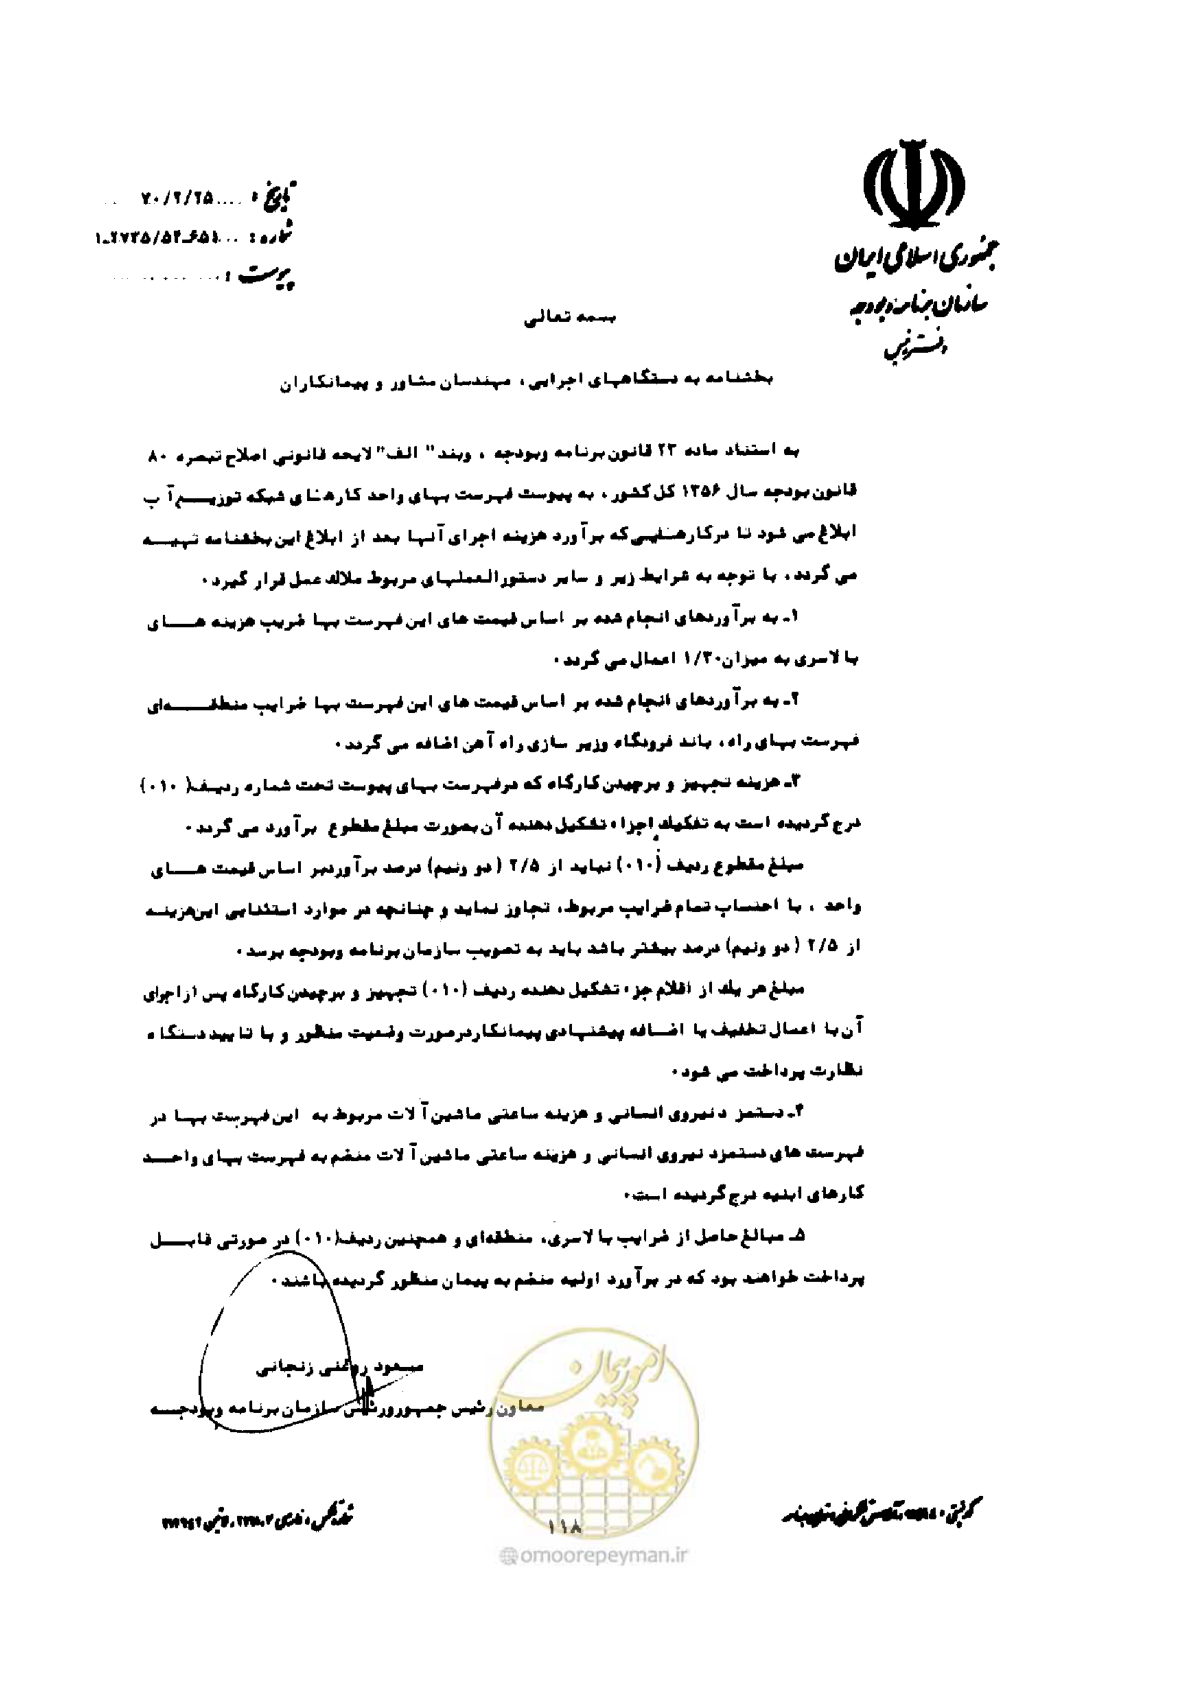 جمهوری اسلامی ایران
سازمان برنامه و بودجه
دفتر رئیس
تاریخ : ۷۰/۲/۲۵
شماره : ۱-۲۷۳۵/۵۴-۶۵۱
پیوست :
بسمه تعالی
بخشنامه به دستگاههای اجرایی ، مهندسان مشاور و پیمانکاران
به استناد ماده ۲۳ قانون برنامه وبودجه ، وبند" الف" لایحه قانونی اصلاح تبصره ۸۰
قانون بودجه سال ۱۳۵۶ کل کشور ، به پیوست فهرست بهای واحد کارهای شبکه توزیع آب
ابلاغ می شود تا درکارهایی که برآورد هزینه اجرای آنها بعد از ابلاغ این بخشنامه تهیه
می گردد ، با توجه به شرایط زیر و سایر دستورالعملهای مربوط ملاك عمل قرار گیرد .
۱ـ به برآوردهای انجام شده بر اساس قیمت های این فهرست بها ضریب هزینه های
بالاسری به میزان ۱/۳۰ اعمال می گردد .
۲ـ به برآوردهای انجام شده بر اساس قیمت های این فهرست بها ضرایب منطقه‌ای
فهرست بهای راه ، باند فرودگاه وزیر سازی راه آهن اضافه می گردد .
۳ـ هزینه تجهیز و برچیدن کارگاه که درفهرست بهای پیوست تحت شماره ردیف( ۰۱۰)
درج گردیده است به تفکیك اجزاء تشکیل دهنده آن بصورت مبلغ مقطوع برآورد می گردد .
مبلغ مقطوع ردیف (۰۱۰) نباید از ۲/۵ ( دو ونیم) درصد برآوردبر اساس قیمت های
واحد ، با احتساب تمام ضرایب مربوط، تجاوز نماید و چنانچه در موارد استثنایی این‌هزینه
از ۲/۵ ( دو ونیم) درصد بیشتر باشد باید به تصویب سازمان برنامه وبودجه برسد .
مبلغ هر یك از اقلام جزء تشکیل دهنده ردیف (۰۱۰) تجهیز و برچیدن کارگاه پس ازاجرای
آن با اعمال تخفیف یا اضافه پیشنهادی پیمانکاردرصورت وضعیت منظور و با تایید دستگاه
نظارت پرداخت می شود .
۴ـ دستمزد نیروی انسانی و هزینه ساعتی ماشین آلات مربوط به این فهرست بها در
فهرست های دستمزد نیروی انسانی و هزینه ساعتی ماشین آلات منضم به فهرست بهای واحد
کارهای ابنیه درج گردیده است .
۵ـ مبالغ حاصل از ضرایب بالاسری، منطقه‌ای و همچنین ردیف(۰۱۰) در صورتی قابل
پرداخت خواهند بود که در برآورد اولیه منضم به پیمان منظور گردیده باشند .
مسعود روغنی زنجانی
معاون رئیس جمهورورئیس سازمان برنامه وبودجه
امور پیمان
۱۱۸
@omoorepeyman.ir